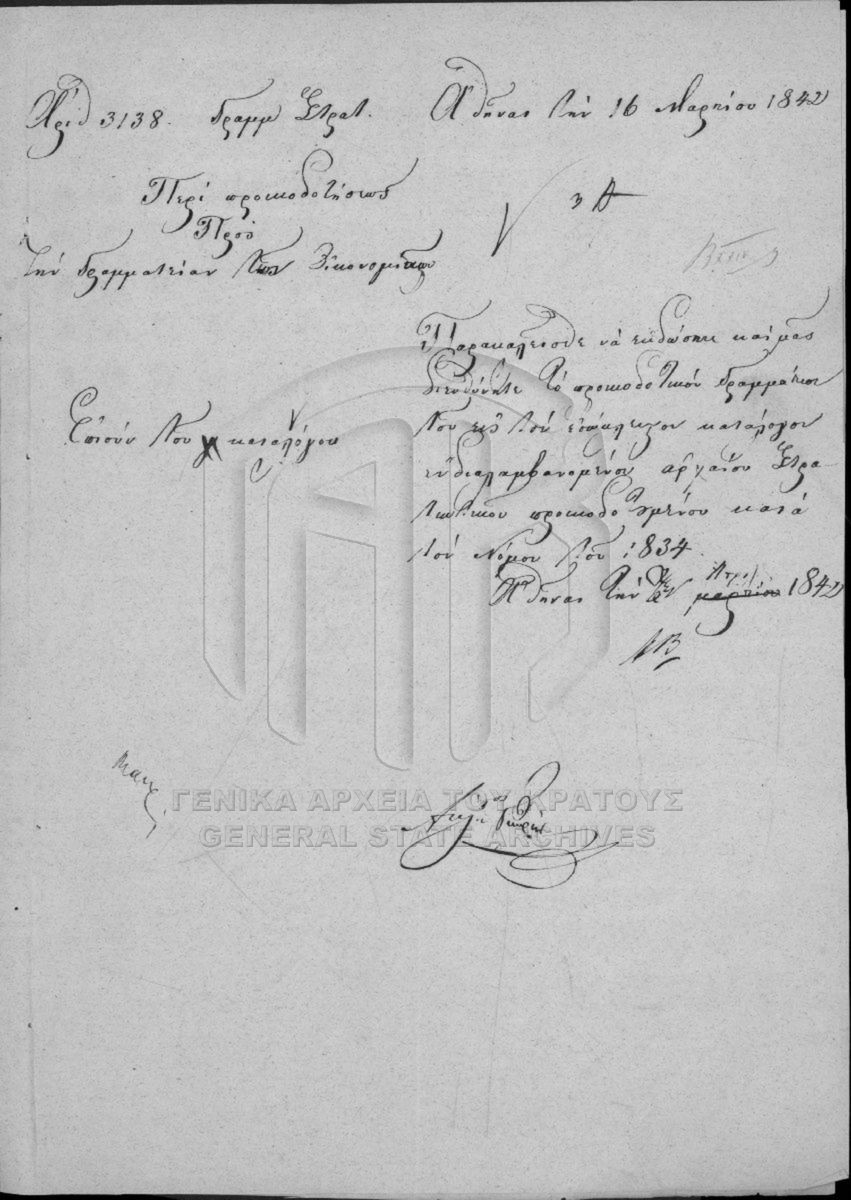 Ἀριθ 3138. Γραμμ Στρατ.
Ἀθῆναι τὴν 16 Μαρτίου 1842
Περὶ προικοδοτήσεως
Πρὸς
τὴν Γραμματείαν τῶν Οἰκονομικῶν
Παρακαλεῖσθε νὰ ἐκδώσητε καὶ μᾶς
διευθύνητε τὸ προικοδοτικόν γραμμάτιον
τοῦ εἰς τὸν ἐσώκλειστον κατάλογον
ἐνδιαλαμβανομένου ἀρχαίου Στρα
τιωτικοῦ προικοδοτημένου κατὰ
τὸν Νόμον τοῦ 1834.
Ἐπισυν του καταλόγου
Ἀθῆναι τὴν Μαρτίου 1842
ΓΕΝΙΚΑ ΑΡΧΕΙΑ ΤΟΥ ΚΡΑΤΟΥΣ
GENERAL STATE ARCHIVES